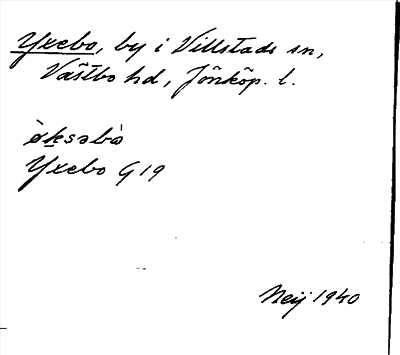 Yxebo, by i Villstads sn,
Västbo hd, Jönköp. l.
ø̀ksəbò
Yxebo G 19
Neij 1940